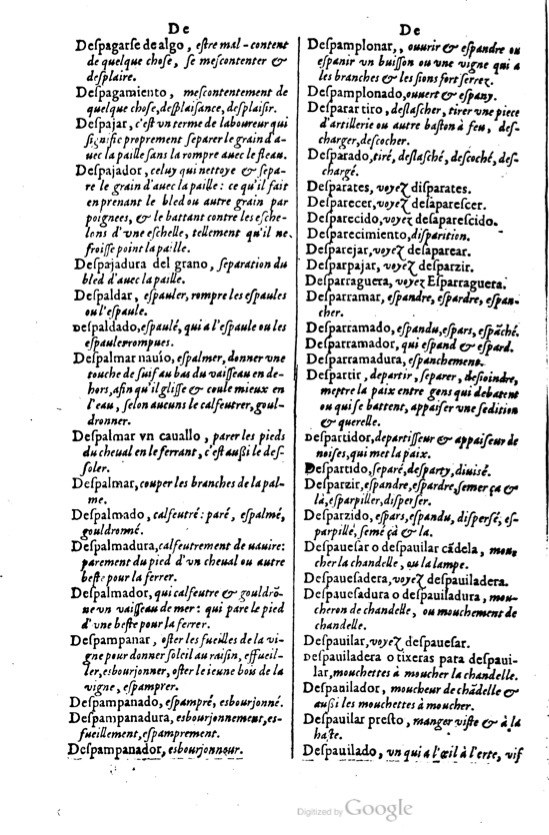 De
Deſpagarſe de algo, eſtre mal-content
de quelque choſe, ſe meſcontenter &
deſplaire.
Deſpagamiento, meſcontentement de
quelque choſe, deſplaiſance, deſplaiſir.
Deſpajar, c'eſt vn terme de laboureur qui
ſignific proprement ſeparer le grain d'a-
uec la paille ſans la rompre auec le fleau.
Deſpajador, celuy qui nettoye & ſepa-
re le grain d'auec la paille: ce qu'il fait
en prenant le bled ou autre grain par
poignees, & le battant contre les eſche-
lons d'vne eſchelle, tellement qu'il ne
froiſſe point la paille.
Deſpajadura del grano, ſeparation du
bled d'auec la paille.
Deſpaldar, eſpauler, rompre les eſpaules
ou l'eſpaule.
Deſpaldado, eſpaulé, qui a l'eſpaule ou les
eſpaules rompues.
Deſpalmar nauio, eſpalmer, donner vne
touche de ſuif au bas du vaiſſeau en de-
hors, afin qu'il gliſſe & coule mieux en
l'eau, ſelon aucuns le calfeutrer, goul-
dronner.
Deſpalmar vn cauallo, parer les pieds
du cheual en le ferrant, c'eſt außi le deſ-
ſoler.
Deſpalmar, couper les branches de la pal-
me.
Deſpalmado, calfeutré: paré, eſpalmé,
gouldronné.
Deſpalmadura, calfeutrement de nauire:
parement du pied d'vn cheual ou autre
beſte pour la ferrer.
Deſpalmador, qui calfeutre & gouldrō-
ne vn vaiſſeau de mer: qui pare le pied
d'vne beſte pour la ferrer.
Deſpampanar, oſter les fueilles de la vi-
gne pour donner ſoleil au raiſin, effueil-
ler, esbourjonner, oſter le ieune bois de la
vigne, eſpamprer.
Deſpampanado, eſpampré, esbourjonné.
Deſpampanadura, esbourjonnement, eſ-
fueillement, eſpamprement.
Deſpampanador, esbourjonneur.
De
Deſpamplonar,, ouurir & eſpandre ou
eſpanir vn buiſſon ou vne vigne qui a
les branches & les ſions fort ſerrez.
Deſpamplonado, ouuert & eſpany.
Deſparar tiro, deſlaſcher, tirer vne piece
d'artillerie ou autre baſton à feu, deſ-
charger, deſcocher.
Deſparado, tiré, deſlaſché, deſcoché, deſ-
chargé.
Deſparates, voyez diſparates.
Deſparecer, voyez deſapareſcer.
Deſparecido, voyez deſapareſcido.
Deſparecimiento, diſparition.
Deſparejar, voyez deſaparear.
Deſparpajar, voyez deſparzir.
Deſparraguera, voyez Eſparraguera.
Deſparramar, eſpandre, eſpardre, eſpan-
cher.
Deſparramado, eſpandu, eſpars, eſpāché.
Deſparramador, qui eſpand & eſpard.
Deſparramadura, eſpanchement.
Deſpartir, departir, ſeparer, deſioindre,
mettre la paix entre gens qui debatent
ou qui ſe battent, appaiſer vne ſedition
& querelle.
Deſpartidor, departiſſeur & appaiſeur de
noiſes, qui met la paix.
Deſpartido, ſeparé, deſparty, diuiſé.
Deſparzir, eſpandre, eſpardre, ſemer çà &
là, eſparpiller, diſperſer.
Deſparzido, eſpars, eſpandu, diſperſé, eſ-
parpillé, ſemé çà & la.
Deſpaueſar o deſpauilar cādela, mou-
cher la chandelle, ou la lampe.
Deſpaueſadera, voyez deſpauiladera.
Deſpaueſadura o deſpauiladura, mou-
cheron de chandelle, ou mouchement de
chandelle.
Deſpauilar, voyez deſpaueſar.
Deſpauiladera o tixeras para deſpaui-
lar, mouchettes à moucher la chandelle.
Deſpauilador, moucheur de chādelle &
außi les mouchettes à moucher.
Deſpauilar preſto, manger viſte & à la
haſte.
Deſpauilado, vn qui a l'œil à l'erte, vif
Digitized by Google